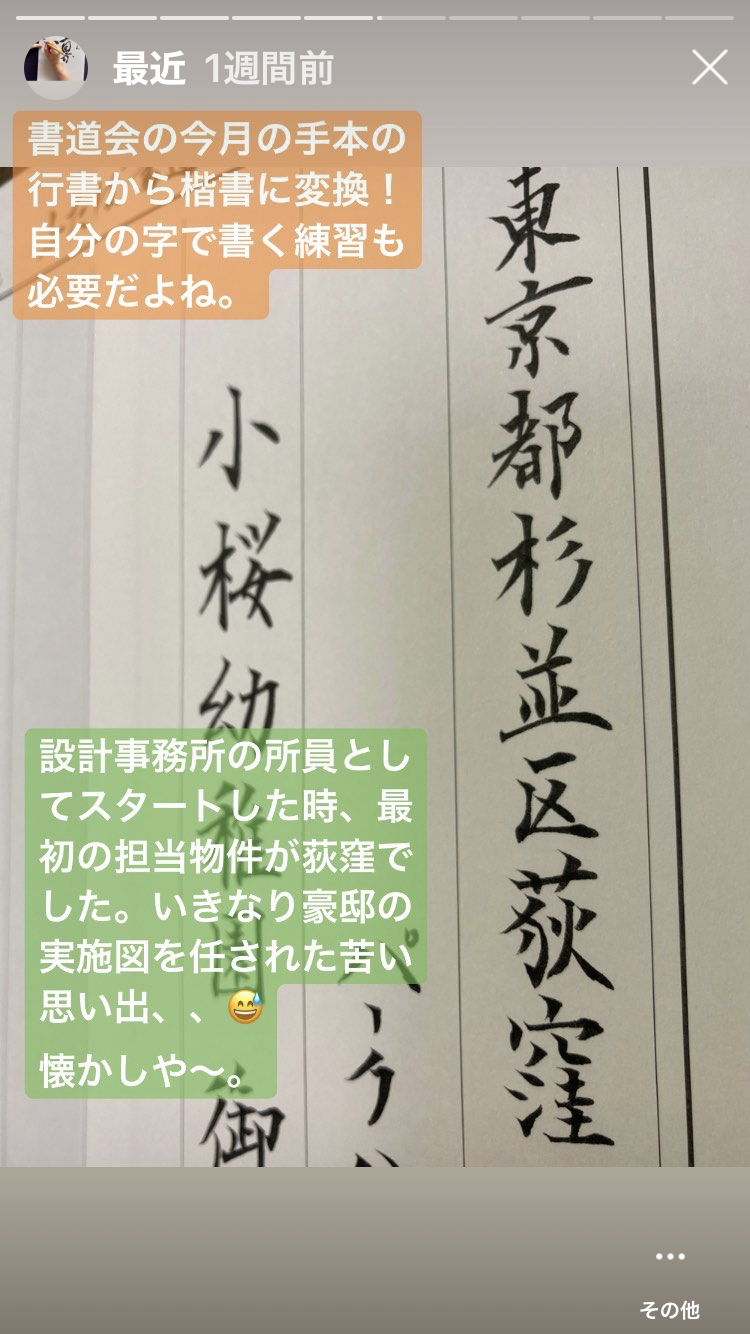 最近 1週間前
書道会の今月の手本の
行書から楷書に変換！
自分の字で書く練習も
必要だよね。
東京都杉並区荻窪
パーク
小桜幼稚園 御
設計事務所の所員とし
てスタートした時、最
初の担当物件が荻窪で
した。いきなり豪邸の
実施図を任された苦い
思い出、、😅
懐かしや〜。
その他